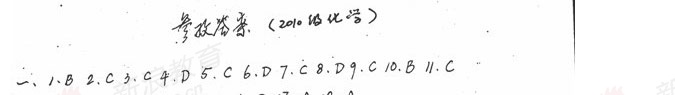 参考答案（2010级化学）
一、1.B 2.C 3.C 4.D 5.C 6.D 7.C 8.D 9.C 10.B 11.C